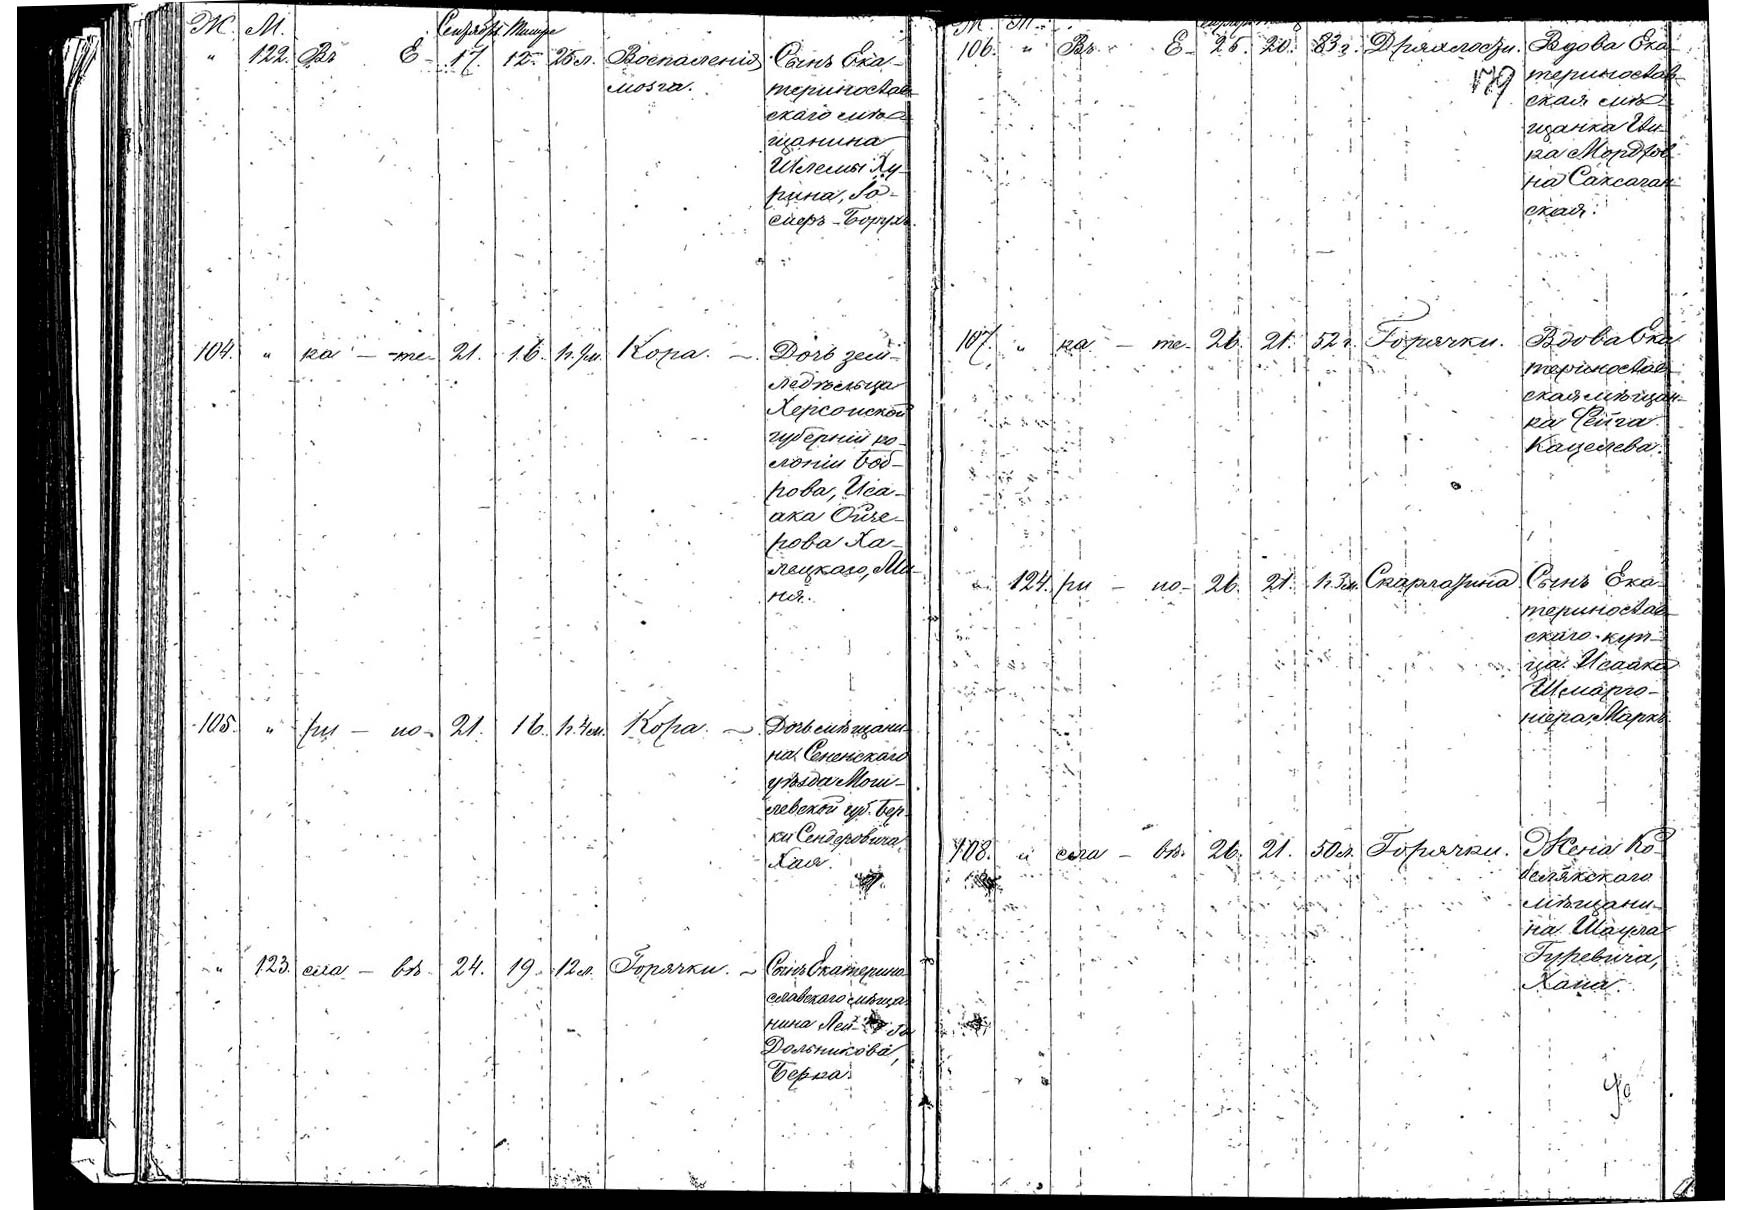 Ж. М. Сентябрь Тишре
" 122. Въ Е- 17. 12. 25 л. Воспаленія Сынъ Ека-
мозга. теринослав-
скаго мѣ-
щанина
Шлемы Ху-
рина,
Борухъ.
104. " ка - те- 21. 16. Кора. Дочь зем-
ледѣльца
Херсонской
губерніи ко-
лоніи Боб-
рова, Иса-
ака Ойзе-
рова Ха-
лецкаго, Ми-
ня.
105. " ри - но- 21. 16. ч. 4 м. Кора. Дочь мѣщани-
на Сененскаго
уѣзда Моги-
левской губ. Бер-
ки Сендеровича
Хая.
" 123. сла - вѣ. 24. 19. 12 л. Горячки. Сынъ Екатерино-
славскаго мѣща-
нина
Дольникова,
Берка.
Ж. М.
106. " Въ Е- 25. 20. 83 г. Дряхлости. Вдова Ека-
179 теринослав-
ская мѣ-
щанка
Мордхов-
на Саксаган-
ская.
107. " ка - те- 26. 21. 52 г. Горячки. Вдова Ека-
теринослав-
ская мѣщан-
ка Фейга
Кацелева.
" 124. ри - но- 26. 21. ч. 3 м. Скарлатина Сынъ Ека-
теринослав-
скаго куп-
ца Исаака
Шмарго-
нера, Маркъ.
108. " сла - вѣ. 26. 21. 50 л. Горячки. Жена Ко-
белякскаго
мѣщани-
на Шаула
Гуревича,
Хана.